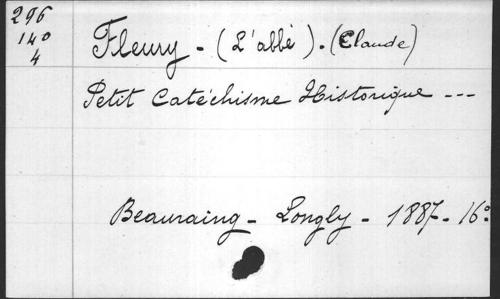 296
140
4
Fleury - (L'abbé) - (Claude)
Petit Catéchisme Historique ---
Beauraing - Longly - 1887 - 16°